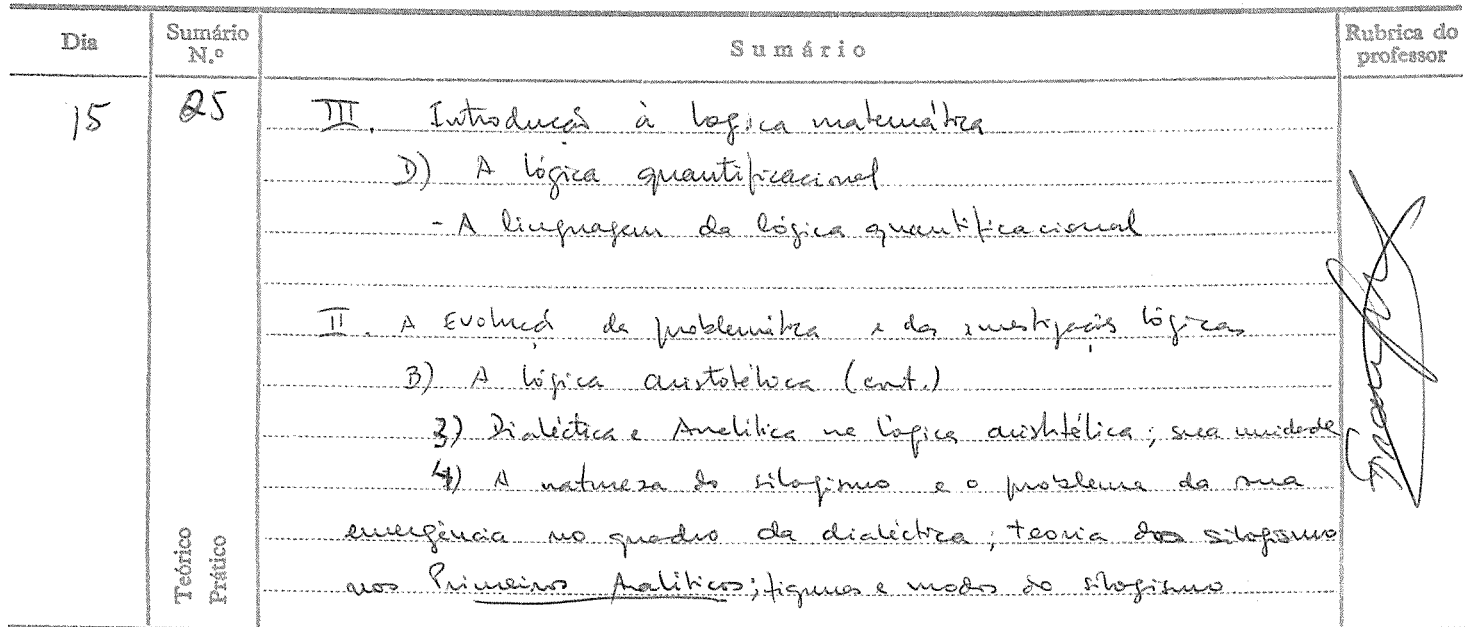 Dia
Sumário N.º
Sumário
Rubrica do professor
15
25
III. Introdução à logica matemática
D) A lógica quantificacional
- A linguagem da lógica quantificacional
II. A Evolução da problemática e das investigações lógicas
B) A lógica aristotélica (cont.)
3) Dialéctica e Analítica na lógica aristotélica; sua unidade
4) A natureza do silogismo e o problema da sua
emergência no quadro da dialéctica; teoria do silogismo
nos Primeiros Analíticos; figuras e modos do silogismo
Teórico
Prático